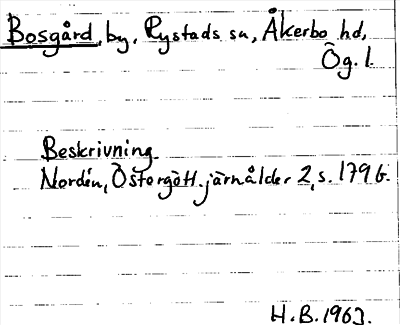 Bosgård, by, Rystads sn, Åkerbo hd,
Ög. l.
Beskrivning.
Nordén, Östergötl. järnålder 2, s. 179 f.
H.B. 1963.